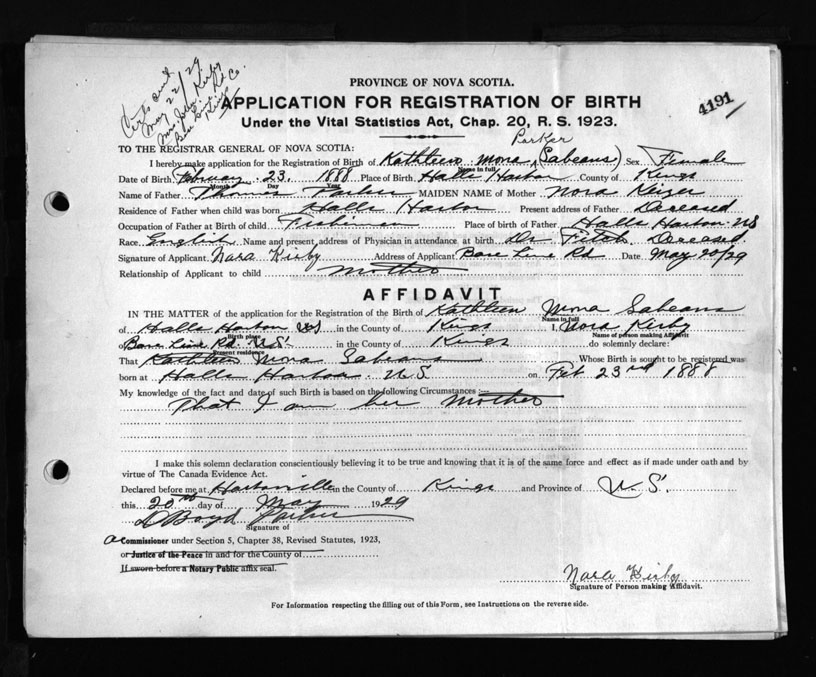 Certs sent
May 22/29
Mrs John Kirby
Base Line Rd Co.
Kings
PROVINCE OF NOVA SCOTIA.
4191
APPLICATION FOR REGISTRATION OF BIRTH
Under the Vital Statistics Act, Chap. 20, R. S. 1923.
Parker
TO THE REGISTRAR GENERAL OF NOVA SCOTIA:
I hereby make application for the Registration of Birth of Kathleen Mona (Sabeans) Sex Female
Name in full
Date of Birth February 23 1888 Place of Birth Halls Harbor County of Kings
Month Day Year
Name of Father Thomas Parker MAIDEN NAME of Mother Nora Keizer
Residence of Father when child was born Halls Harbor Present address of Father Deceased
Occupation of Father at Birth of child Fisherman Place of birth of Father Halls Harbor NS
Race English Name and present address of Physician in attendance at birth Dr Fitch Deceased
Signature of Applicant Nora Kirby Address of Applicant Base Line Rd Date May 20/29
Relationship of Applicant to child Mother
AFFIDAVIT
IN THE MATTER of the application for the Registration of the Birth of Kathleen Mona Sabeans
Name in full
of Halls Harbor NS in the County of Kings I, Nora Kirby
Birth place Name of person making Affidavit
of Base Line Rd N.S. in the County of Kings do solemnly declare:
Present residence
That Kathleen Mona Sabeans Whose Birth is sought to be registered was
born at Halls Harbor N.S on Feb 23rd 1888
My knowledge of the fact and date of such Birth is based on the following Circumstances:—
That I am her Mother
I make this solemn declaration conscientiously believing it to be true and knowing that it is of the same force and effect as if made under oath and by
virtue of The Canada Evidence Act.
Declared before me at Harborville in the County of Kings and Province of N.S.
this 20th day of May 1929
D Boyd Parker
Signature of
a Commissioner under Section 5, Chapter 38, Revised Statutes, 1923,
or Justice of the Peace in and for the County of
If sworn before a Notary Public affix seal.
Nora Kirby
Signature of Person making Affidavit.
For Information respecting the filling out of this Form, see Instructions on the reverse side.